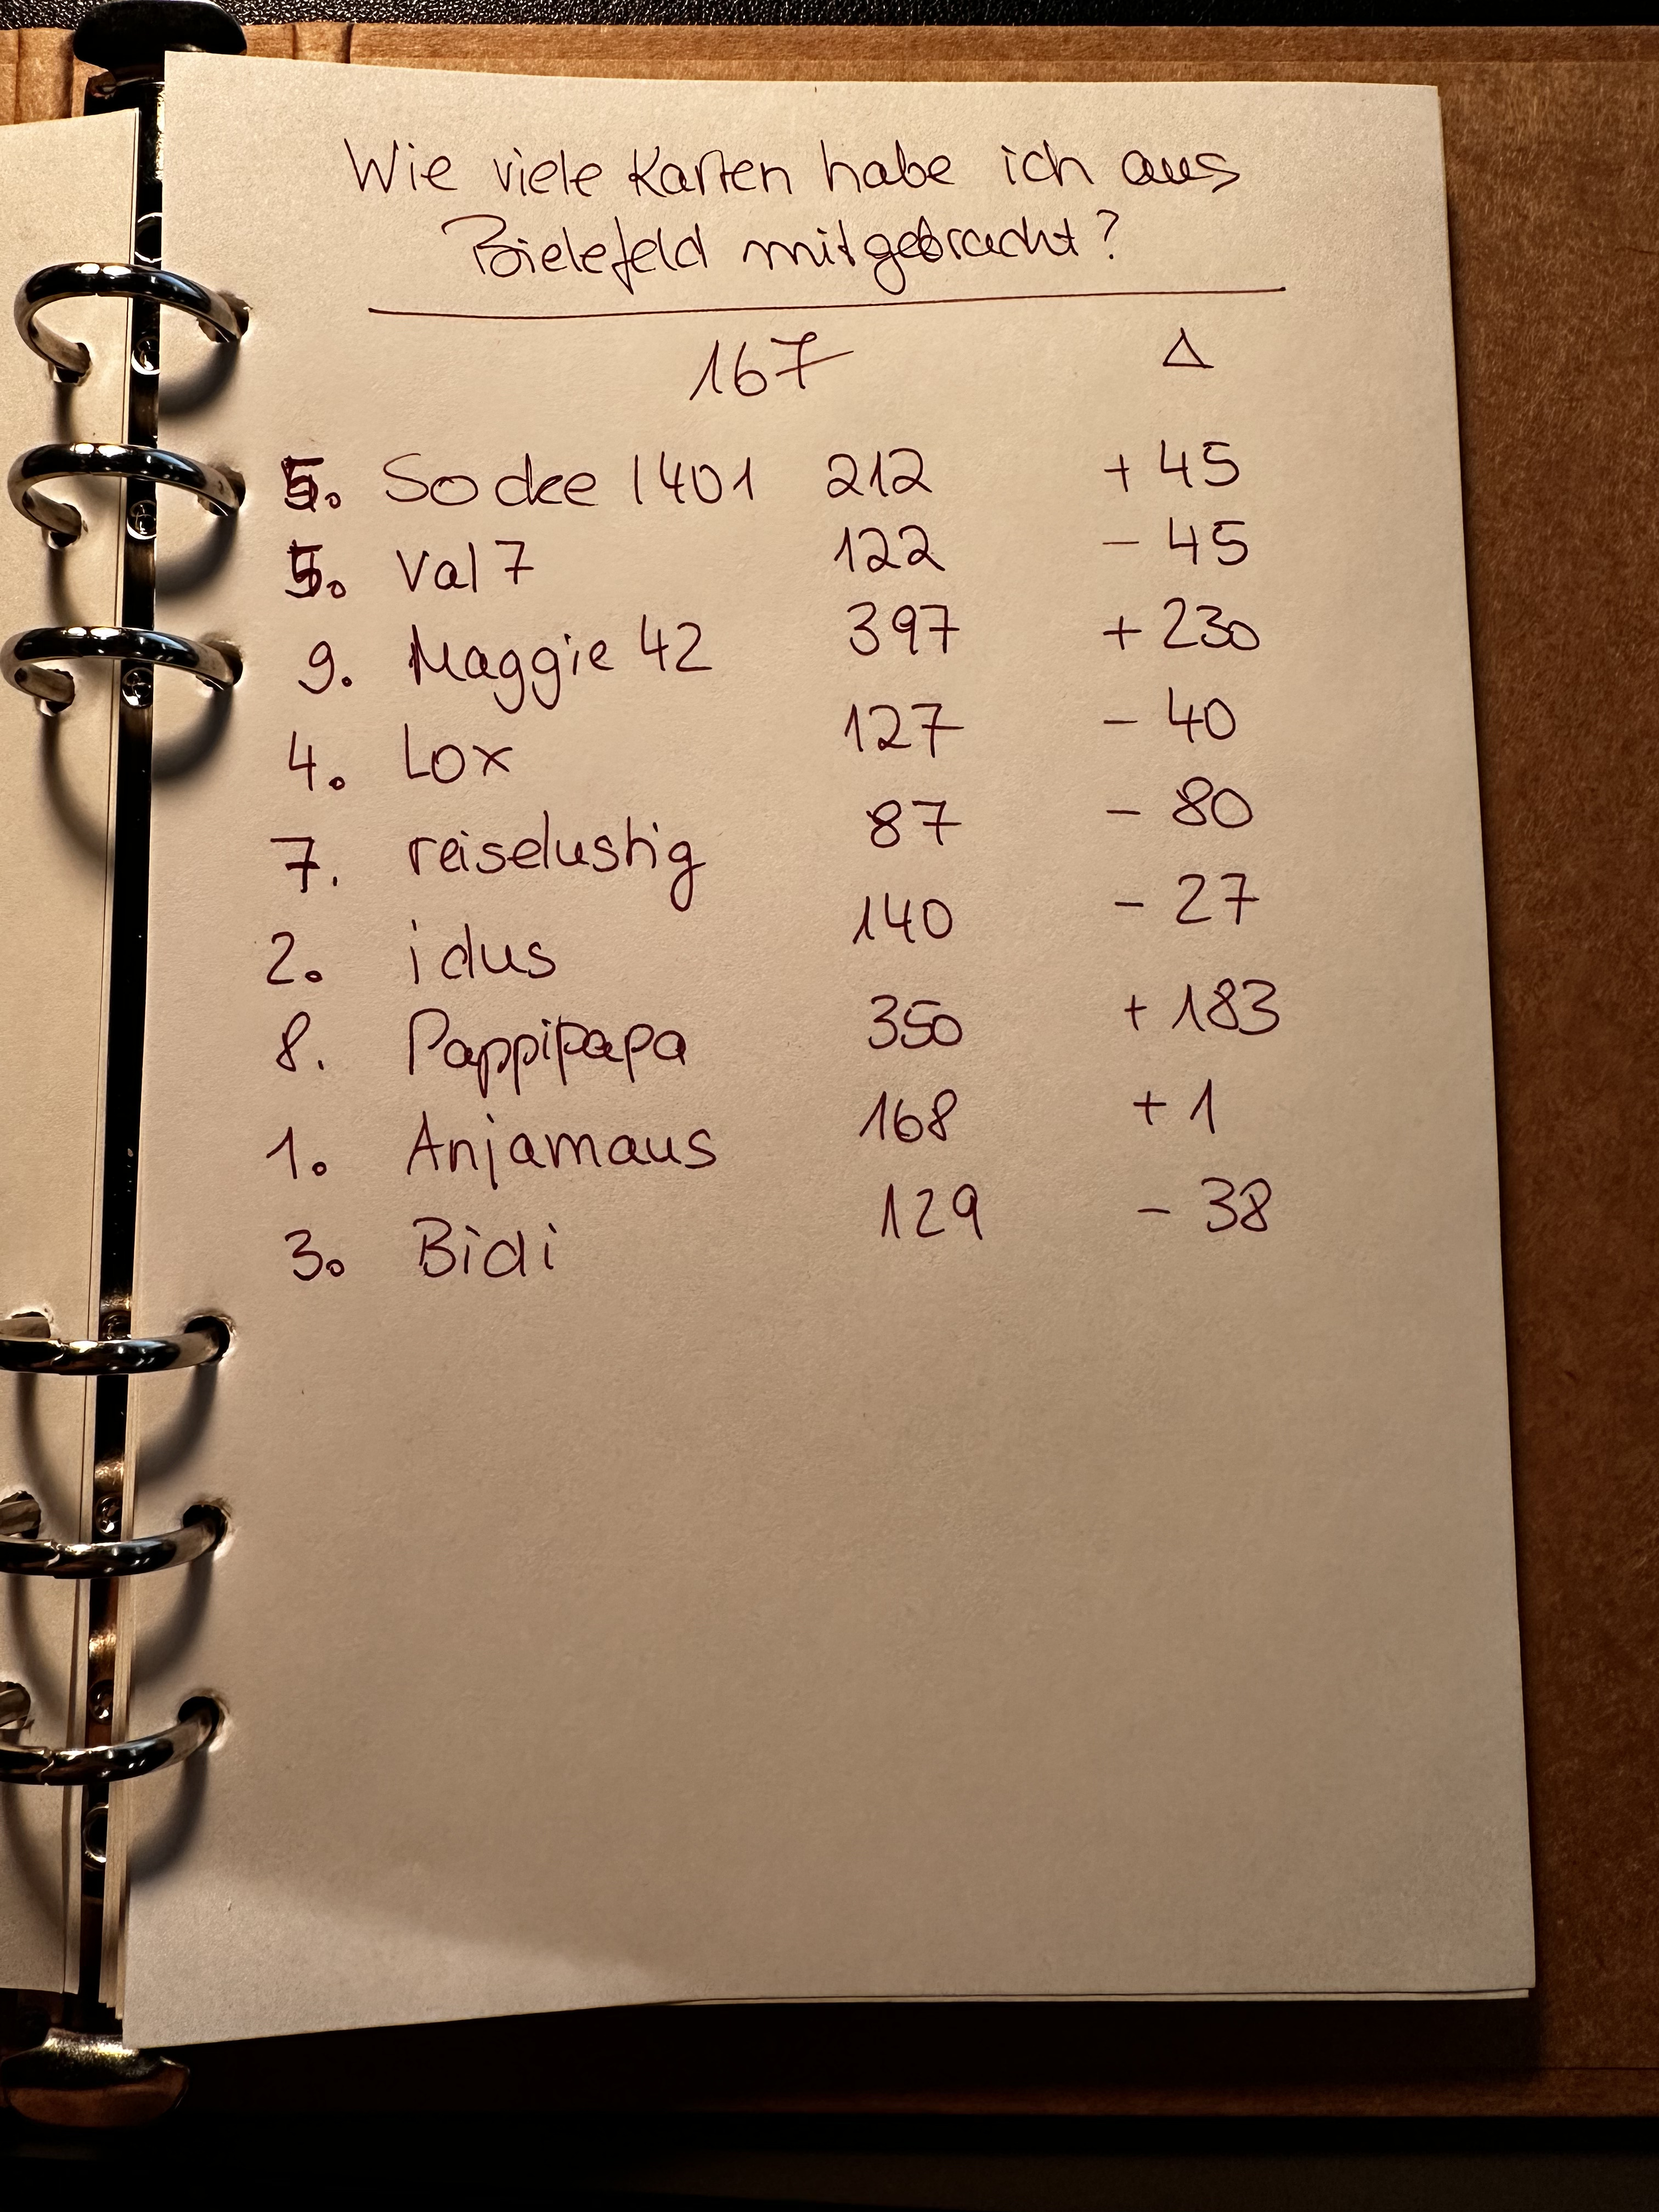 Wie viele Karten habe ich aus
Bielefeld mitgebracht?
167 Δ
5. Socke 1401 212 + 45
5. Val 7 122 - 45
9. Maggie 42 397 + 230
4. Lox 127 - 40
7. reiselustig 87 - 80
2. idus 140 - 27
8. Pappipapa 350 + 183
1. Anjamaus 168 + 1
3. Bidi 129 - 38